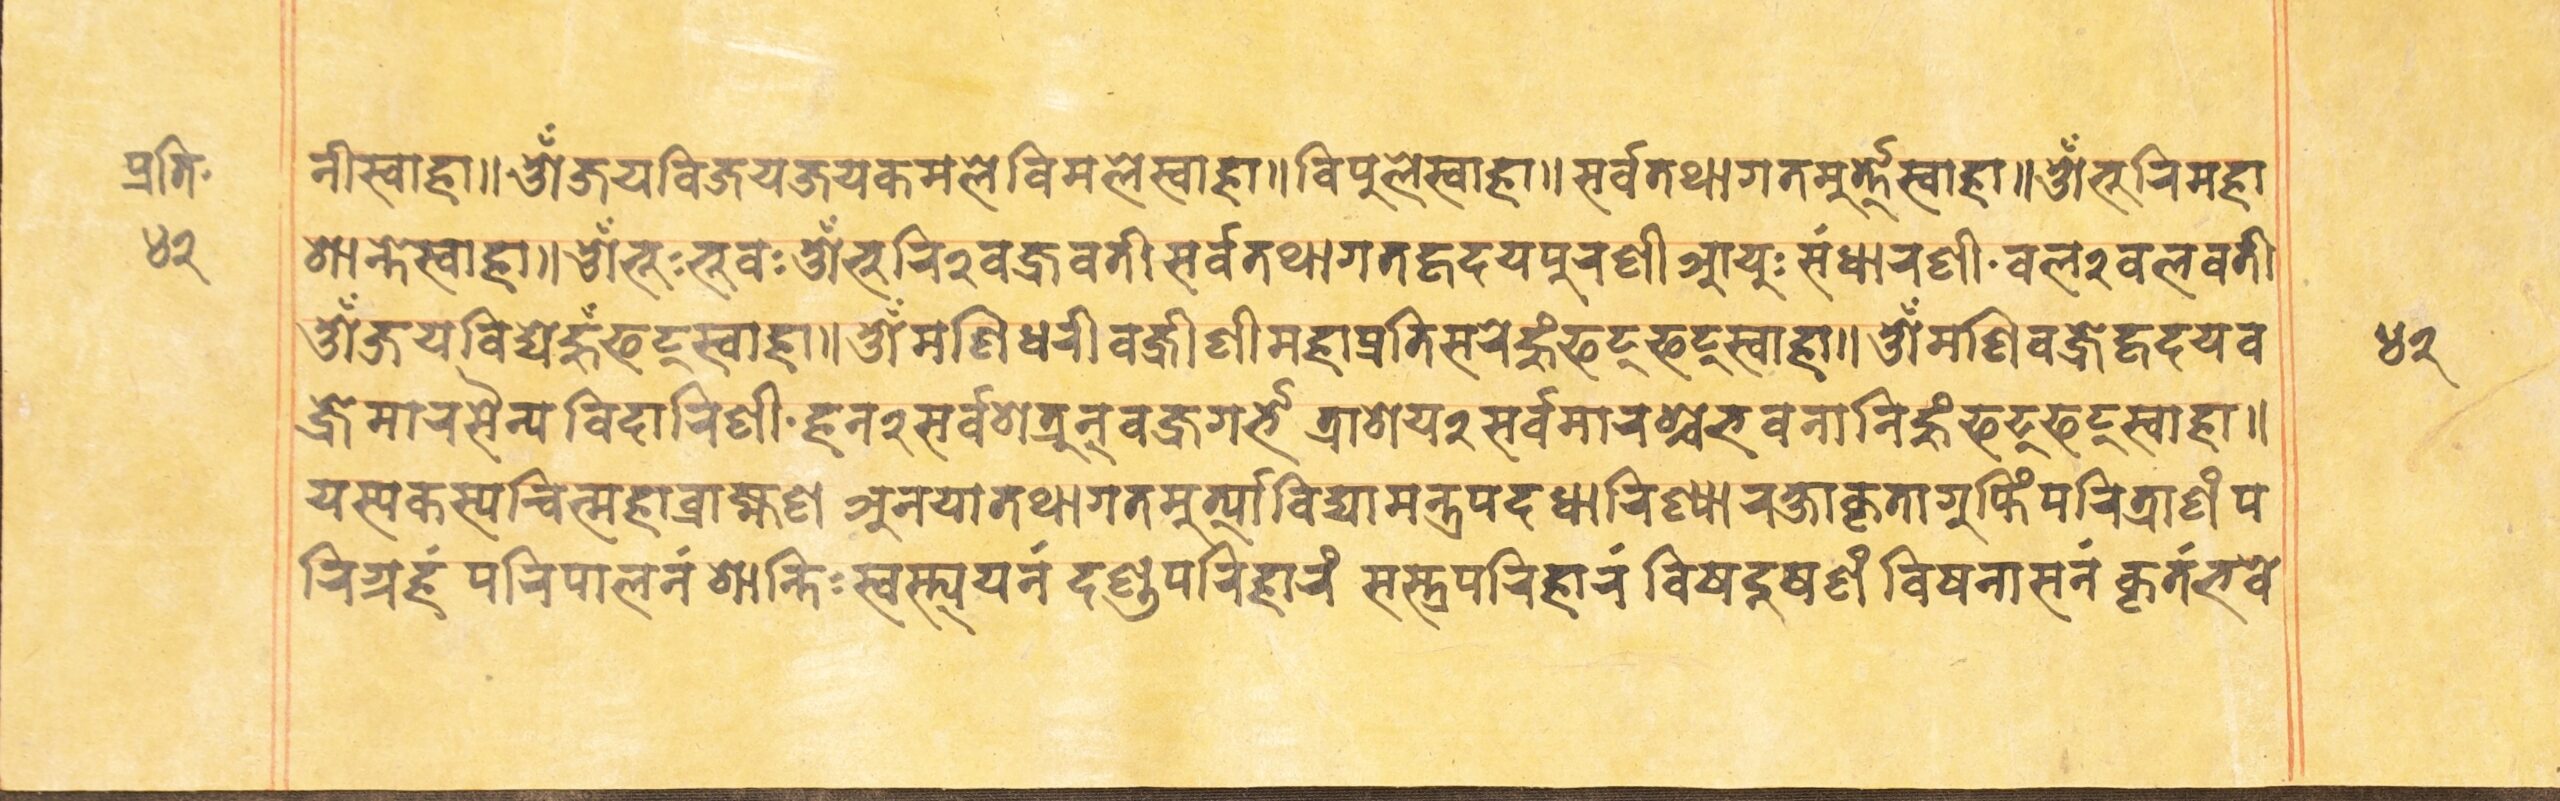 प्रति॰
नीस्वाहा॥ॐजयविजयजयकमलेविमलेस्वाहा॥विपुलेस्वाहा॥सर्वतथागतमुर्त्तेस्वाहा॥ॐभूरिमहा
४२
शान्तेस्वाहा॥ॐभूःभूवःॐभूरि२वज्रवतीसर्वतथागतहृदयपुरणीआयुःसंधारणी·वल२वलवती
ॐजयविद्येहूंफट्स्वाहा॥ॐमणिधरीवज्रीणीमहाप्रतिसरेहूंफट्फट्स्वाहा॥ॐमणिवज्रेहृदयव
४२
ज्रेमारसैन्यविदारिणी·हन२सर्वशत्रुन्वज्रगर्भेत्राशय२सर्वमारश्चभवनानिहूंफट्फट्स्वाहा॥
यस्यकस्यचित्महाब्राह्मणअनयातथागतमुर्त्याविद्यामन्त्रपदधारिण्यारक्षाकृतागुप्तिंपरित्राणंप
रिग्रहंपरिपालनंशान्तिःस्वस्त्ययनंदण्डपरिहारंसस्त्रपरिहारंविषदुषणंविषनासनंकृतंभवे